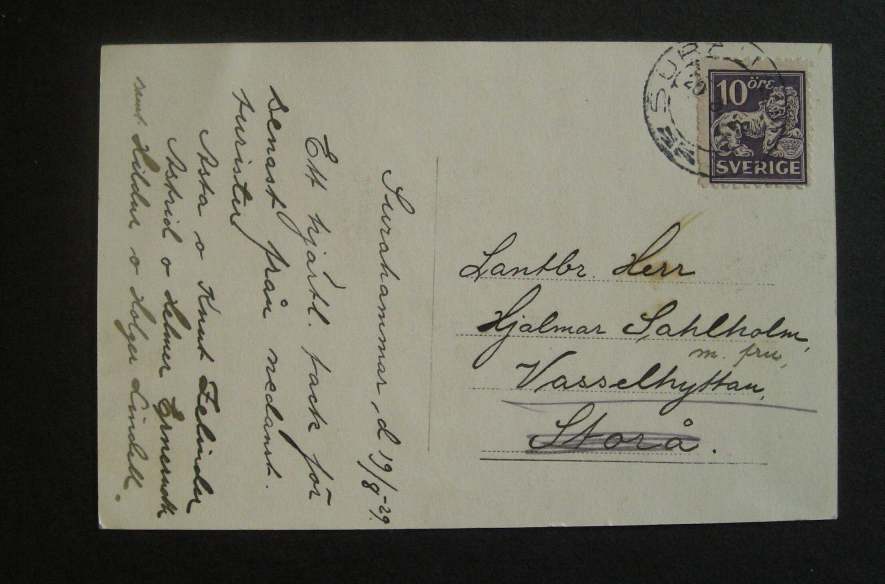 Surahammar, d 19/8-29.
Ett hjärtl. tack för
senast från nedanst.
turister
Asta o Knut Zelinder
Astrid o Helmer
samt Hildur o Holger Lindell.
10 öre
SVERIGE
Lantbr. Herr
Hjalmar Sahlholm,
m. fru,
Vasselhyttan,
Storå.